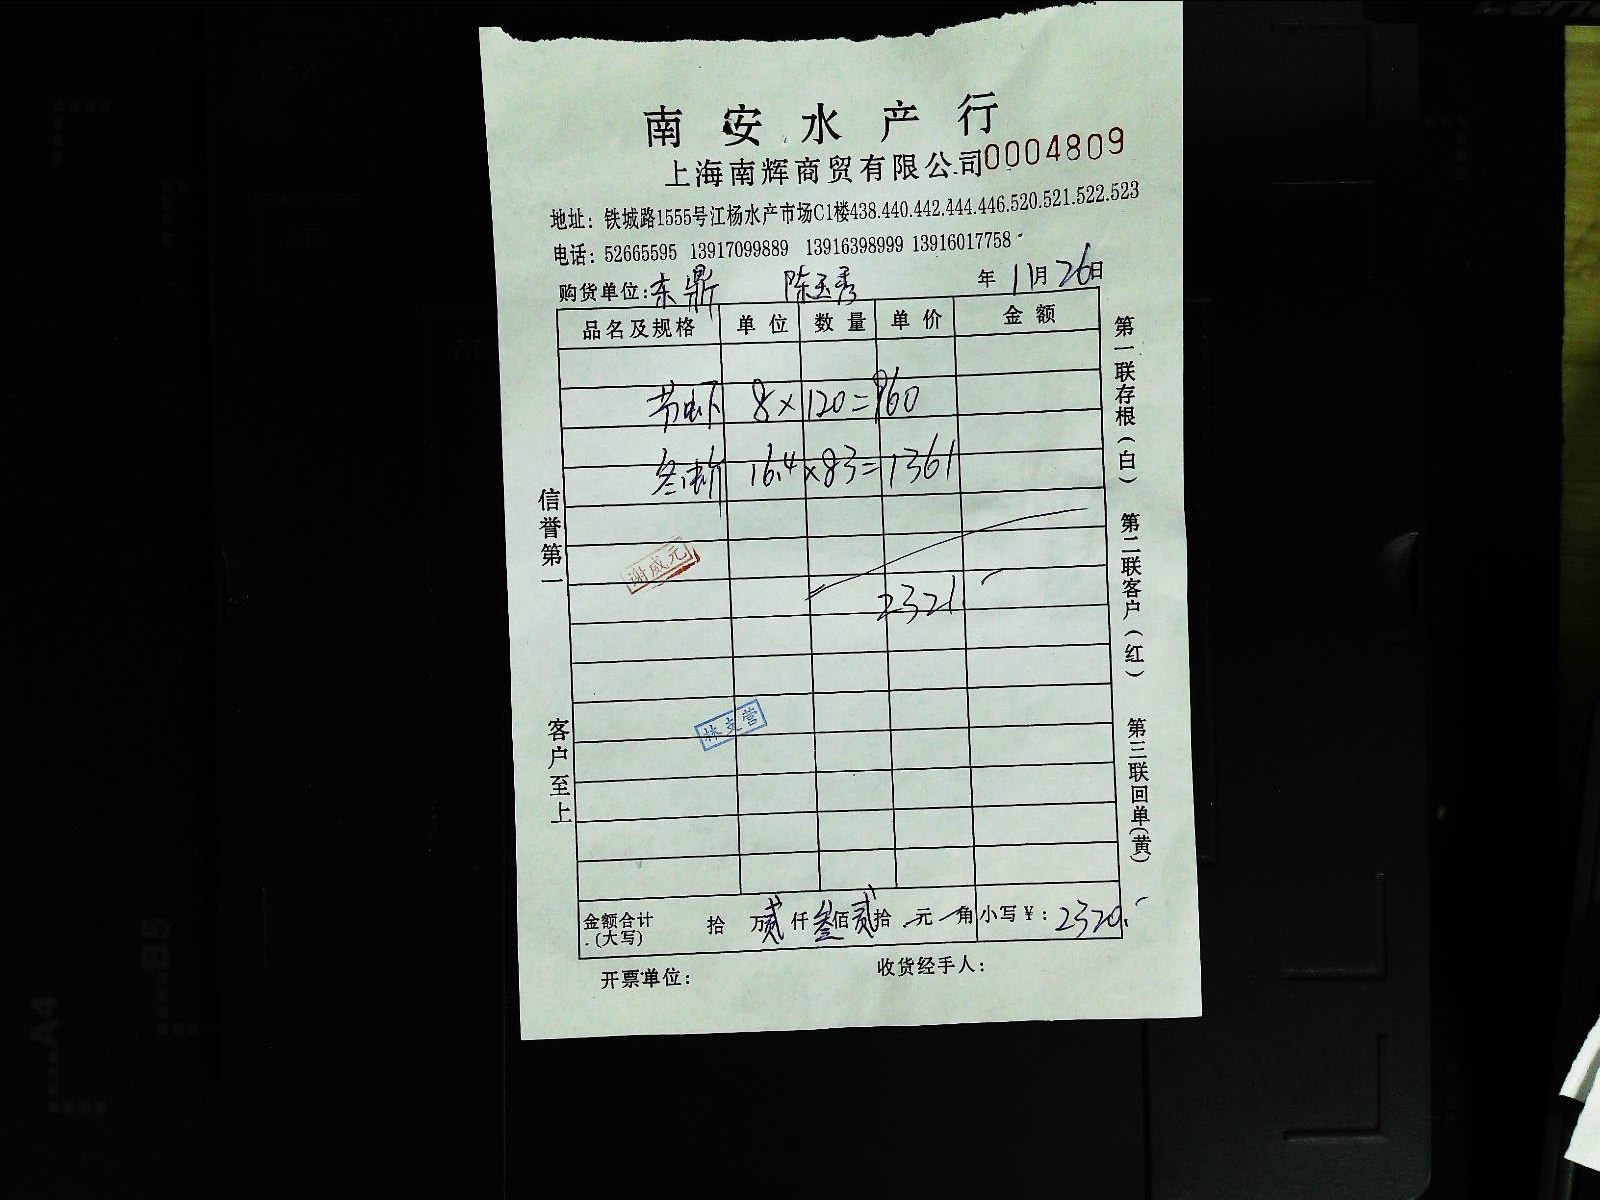 南安水产行
上海南辉商贸有限公司 0004809
地址：铁城路1555号江杨水产市场C1楼438.440.442.444.446.520.521.522.523
电话：52665595 13917099889 13916398999 13916017758
购货单位：东鼎 陈玉秀 年 11月 26日
品名及规格 单位 数量 单价 金额
节虾 8×120=960
16.4×83=1361
2321
谢咸元
林支营
金额合计(大写) 拾 万 贰仟 叁佰 贰拾 元 角 小写￥：2320.
开票单位： 收货经手人：
信誉第一
客户至上
第一联存根(白)
第二联客户(红)
第三联回单(黄)